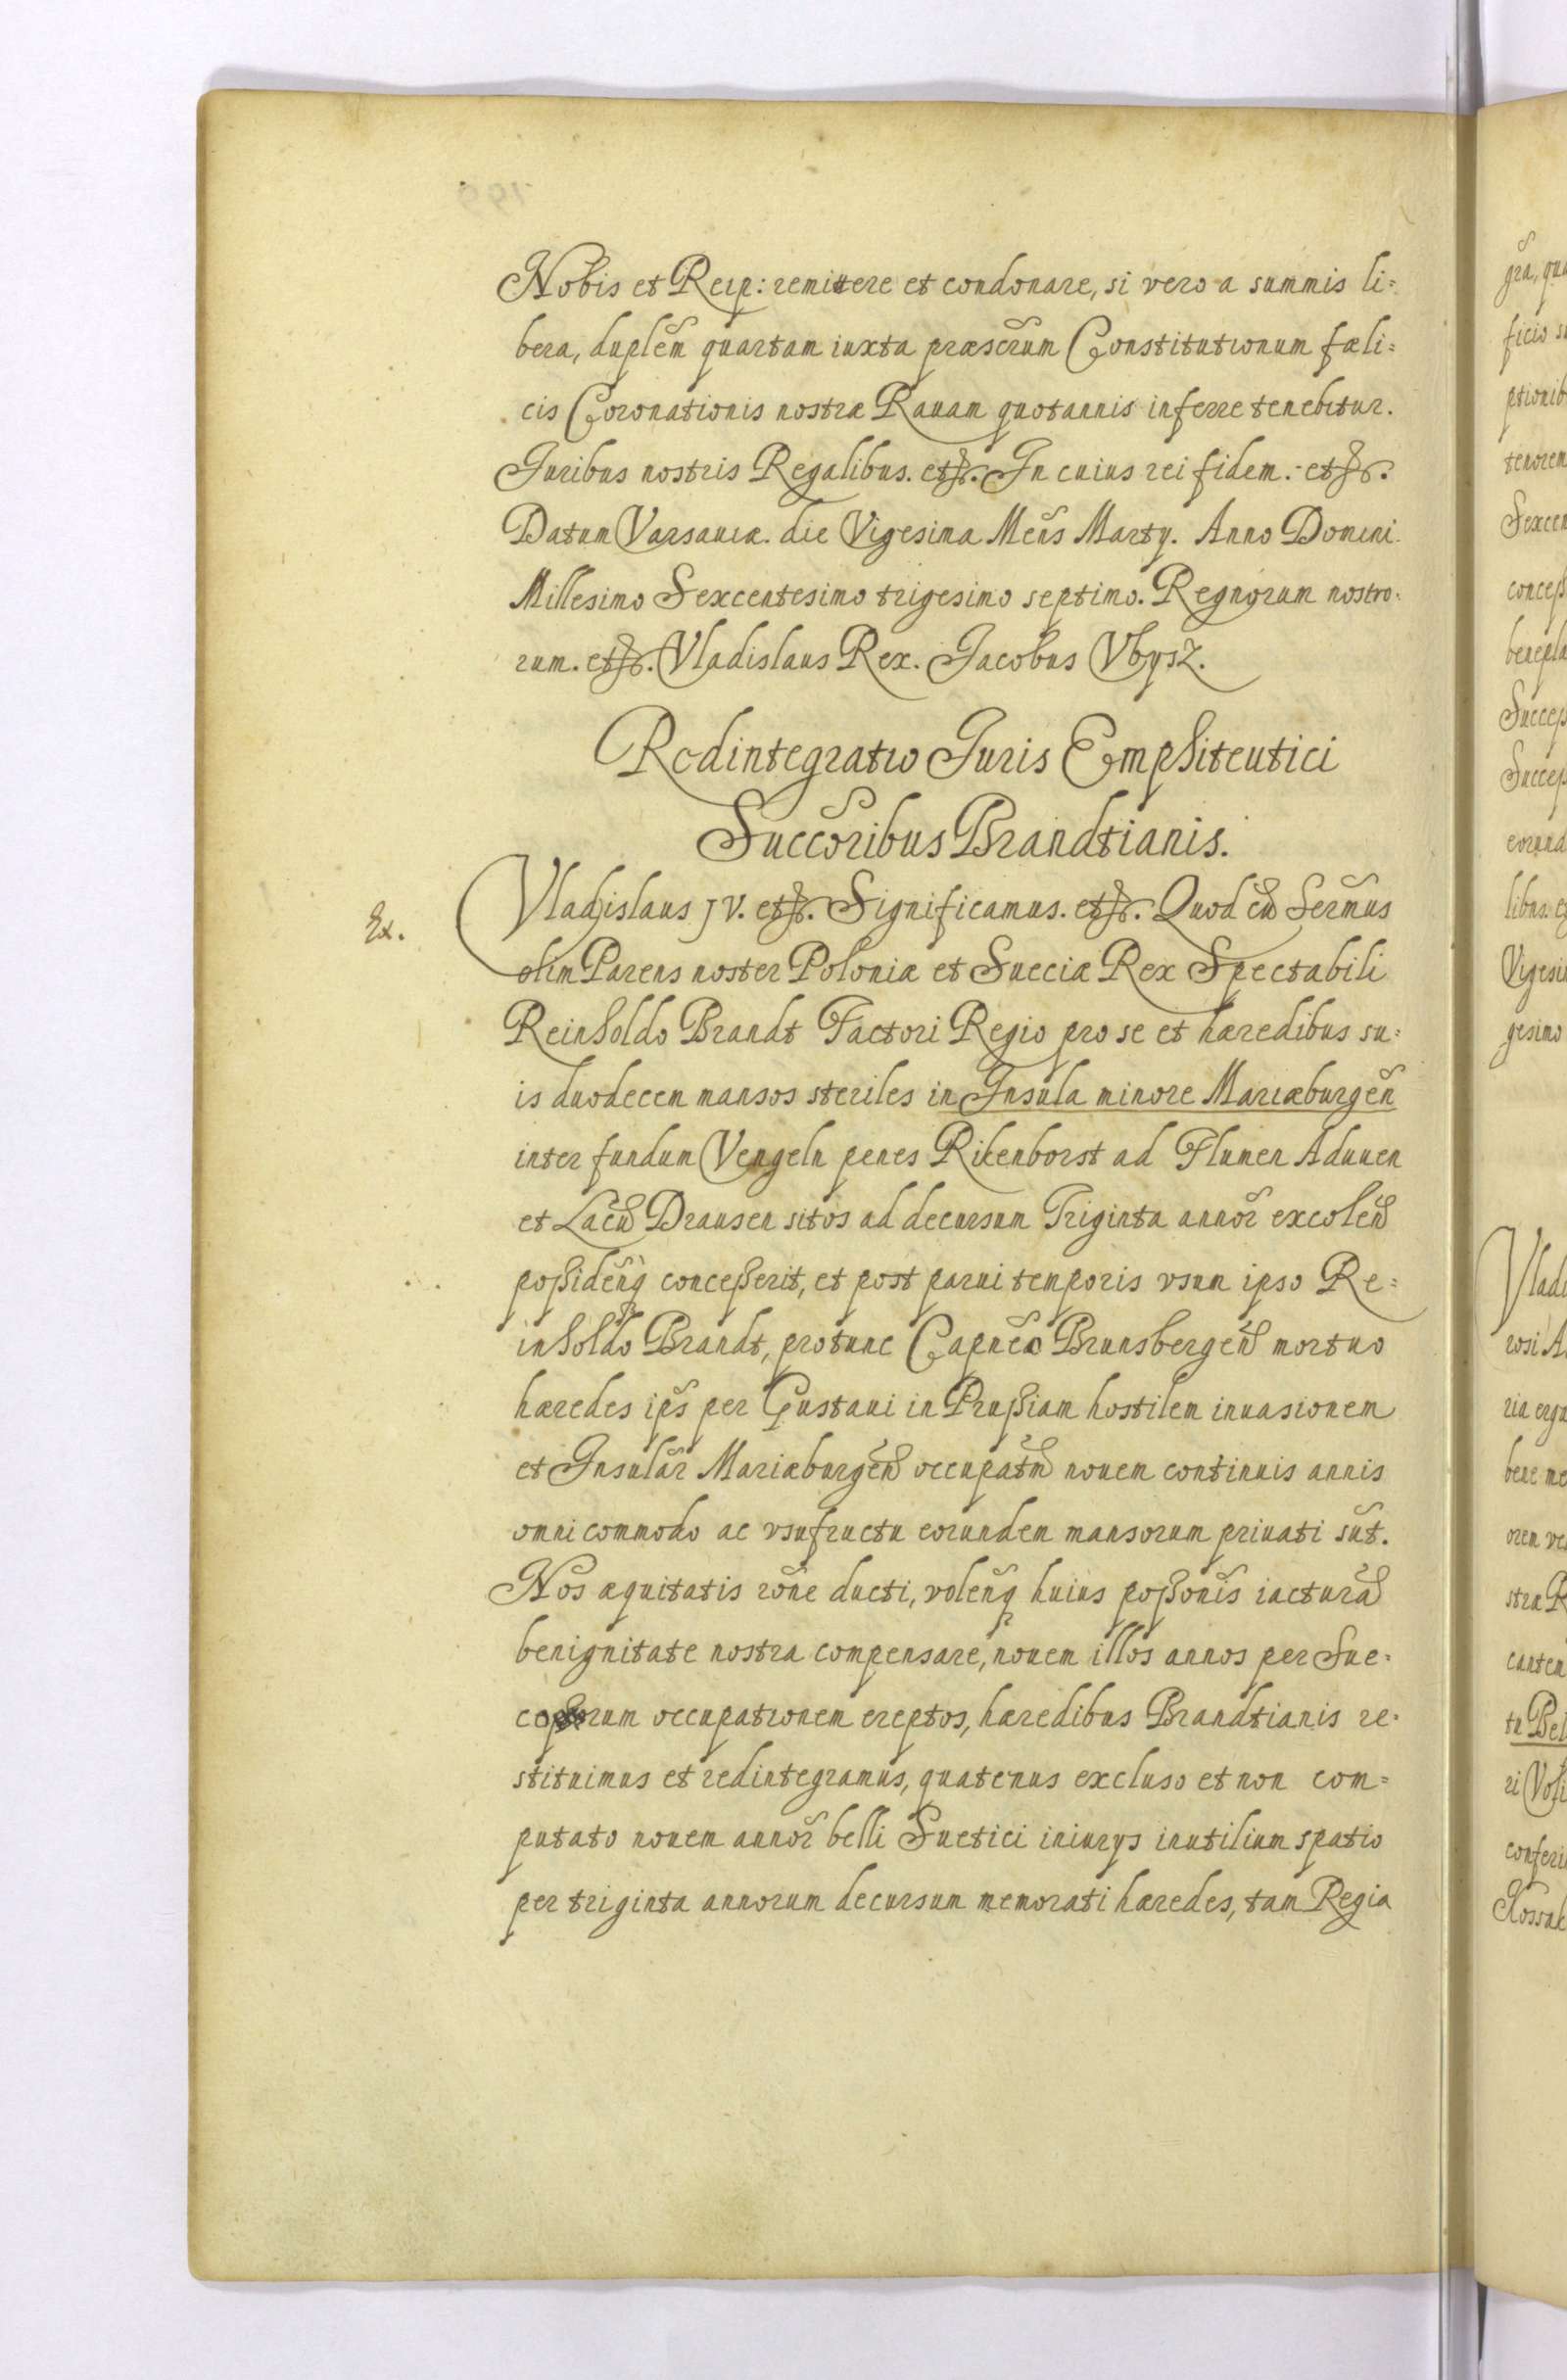 Nobis et Reip: remittere et condonare, si vero a summis li=
bera, duplem̃ quartam iuxta præscr̃um Constitutionum fæli=
cis Coronationis nostræ Rauam quotannis inferre tenebitur.
Juribus nostris Regalibus. etc. In cuius rei fidem. etc.
Datum Varsauiæ. die Vigesima Meñs Martÿ. Anno Domini
Millesimo Sexcentesimo trigesimo septimo. Regnorum nostro=
rum. etc. Vladislaus Rex. Jacobus Vbysz.
Redintegratio Juris Emphiteutici
Succõribus Brandtianis.
Ex.
Vladislaus IV. etc. Significamus. etc. Quod cũ Serm̃us
olim Parens noster Poloniæ et Sueciæ Rex Spectabili
Reinholdo Brandt Factori Regio pro se et hæredibus su=
is duodecem mansos steriles in Insula minore Mariæburgeñ
inter fundum Vengeln penes Rikenborst ad Flumen Aduuen
et Lacũ Drausen sitos ad decursum Triginta annor̃ excoleñd
poßideñq conceßerit, et post parui temporis vsum ipso Re=
inholdo Brandt, protunc Capñeo Brunsbergeñ mortuo
hæredes ip̃s per Gustaui in Prußiam hostilem inuasionem
et Insular̃ Mariæburgeñ occupatñ nouem continuis annis
omni commodo ac vsufructu eorundem mansorum priuati sũt.
Nos æquitatis rõne ducti, voleñq huius poßonĩs iacturã
benignitate nostra compensare, nouem illos annos per Sue=
corum occupationem ereptos, hæredibus Brandtianis re=
stituimus et redintegramus, quatenus excluso et non com=
putato nouem annor̃ belli Suetici iniurÿs inutilium spatio
per triginta annorum decursum memorati hæredes, tam Regia